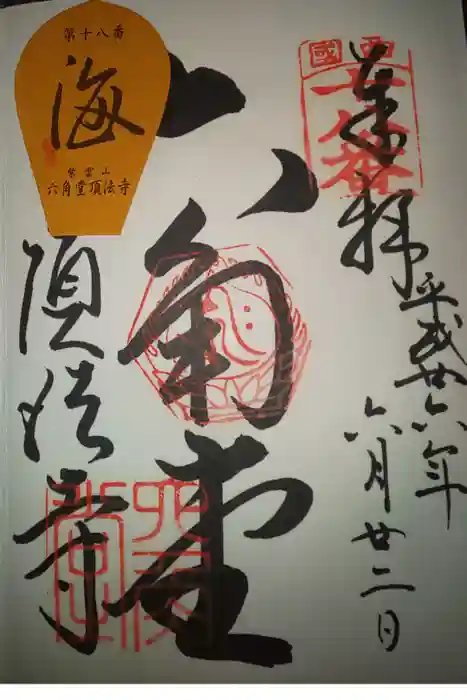 奉拝
平成廿六年
六月廿二日
西國十八番
六角堂
六角堂
頂法寺
第十八番
海
紫雲山
六角堂頂法寺